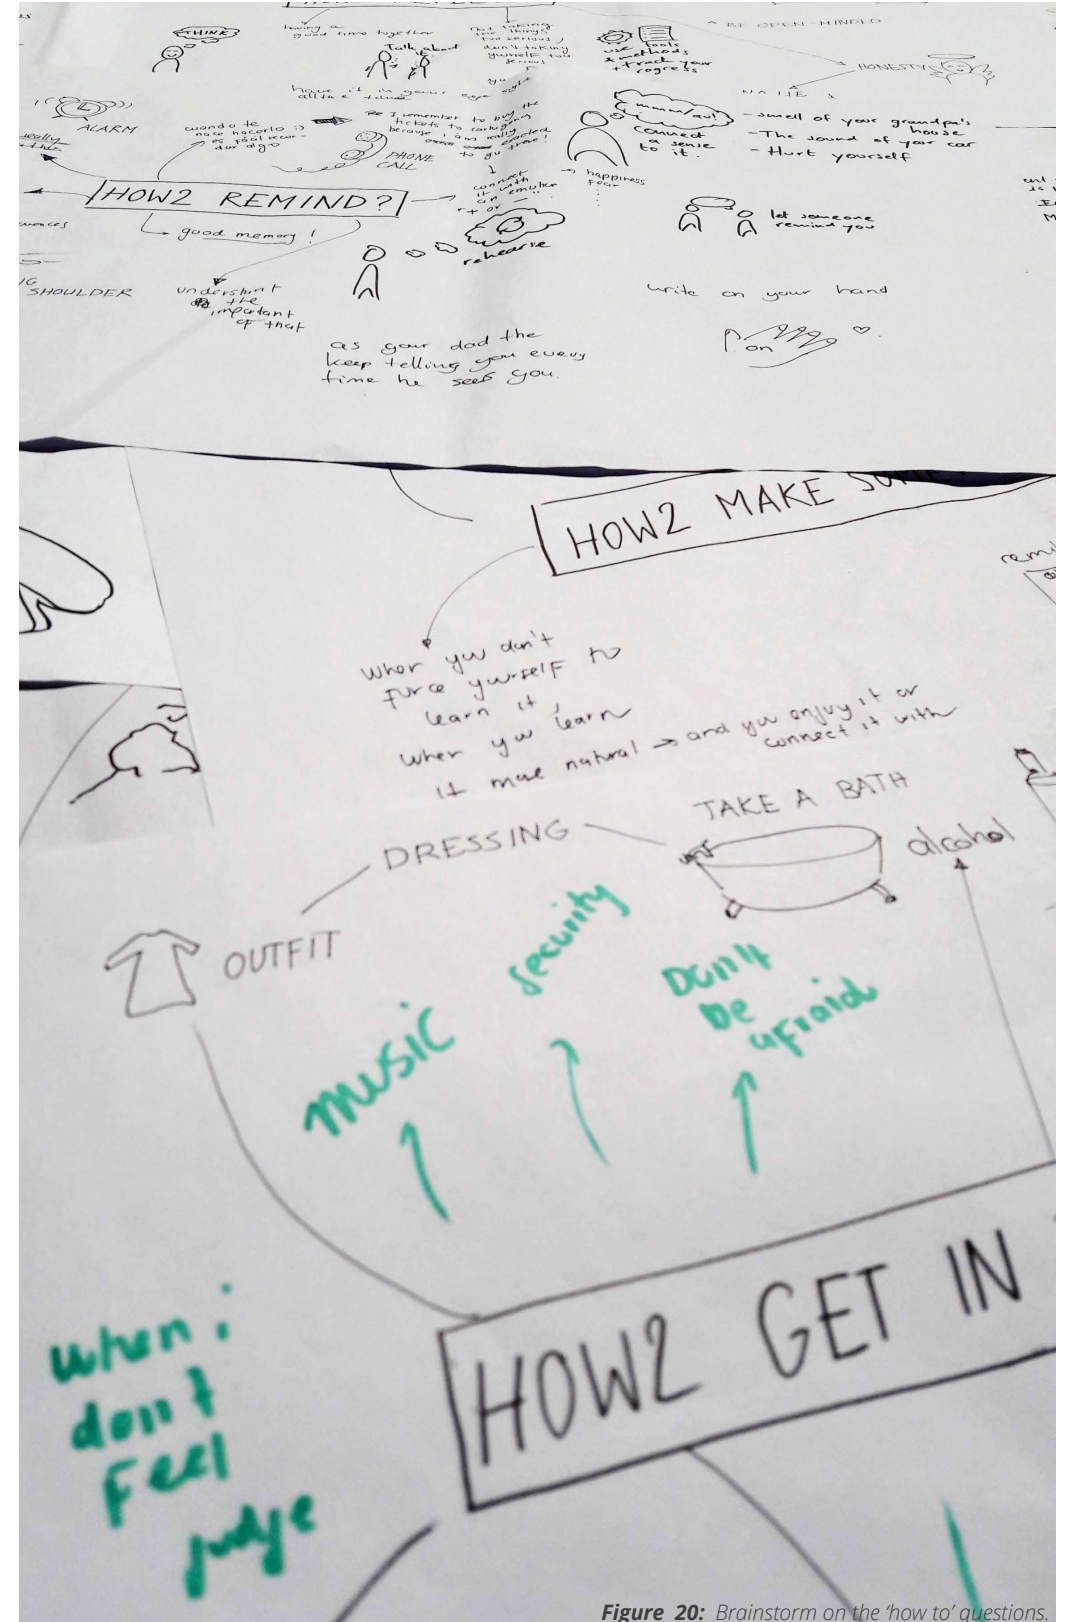 THINK
having a
good time together
Talk about
not taking
the things
too serious,
don't taking
yourself too
serious
use tools
& methods
+ track your
progress
BE OPEN-MINDED
HONESTY
ALARM
have it in your eye sight
all the time
cuando te
nace hacerlo :)
es fácil recor-
dar algo
I remember to buy the
tickets to
because i am really
excited
to go there!
PHONE
CALL
connect
a sense
to it.
- smell of your grandpa's
house
- The sound of your car
- Hurt yourself
really
HOW2 REMIND?
connect
it with
an emotion
+ or -
→ happiness
fear
good memory!
rehearse
let someone
remind you
SHOULDER
understant
the
important
of that
write on your hand
on
as your dad the
keep telling you every
time he sees you.
HOW2 MAKE
when you don't
force yourself to
learn it,
when you learn
it more natural → and you enjoy it or
connect it with
DRESSING
TAKE A BATH
alcohol
OUTFIT
music
security
Don't
be
afraid
HOW2 GET IN
when i
don't
Feel
judge
Figure 20: Brainstorm on the 'how to' questions.